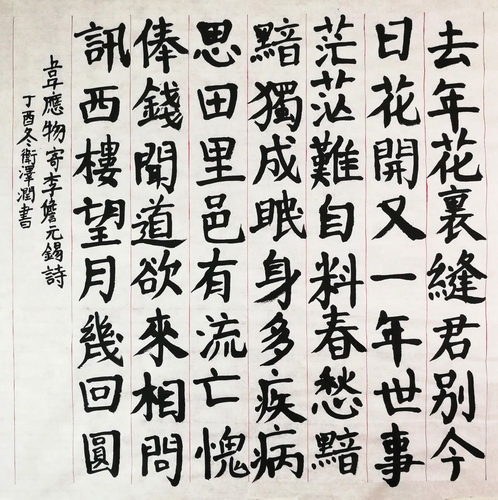 去年花裏縫君别今
日花開又一年世事
茫茫難自料春愁黯
黯獨成眠身多疾病
思田里邑有流亡愧
俸錢聞道欲來相問
訊西樓望月幾回圓
韋應物寄李儋元錫詩
丁酉冬衛澤潤書